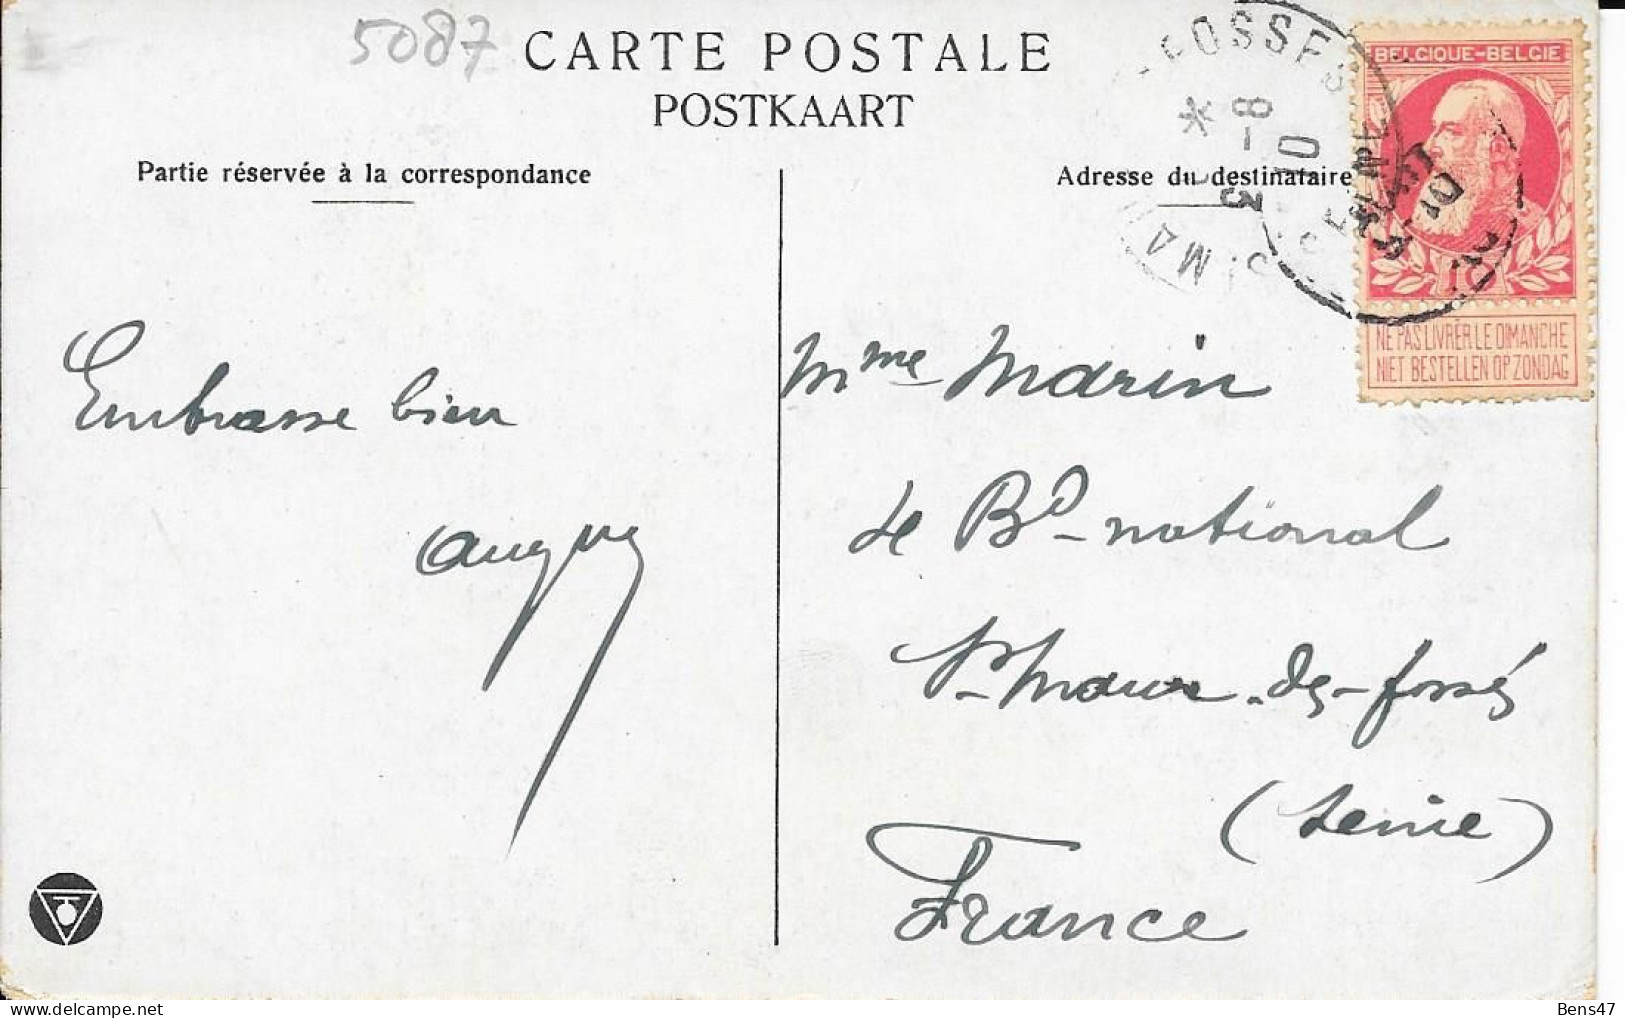 5087
CARTE POSTALE
POSTKAART
Partie réservée à la correspondance
Adresse du destinataire
BELGIQUE-BELGIE
NE PAS LIVRER LE DIMANCHE
NIET BESTELLEN OP ZONDAG
FOSSES
8-3
10
Embrasse bien
Mme Marin
Bd national
St Maur-des-fossés
(Seine)
France
Bens47